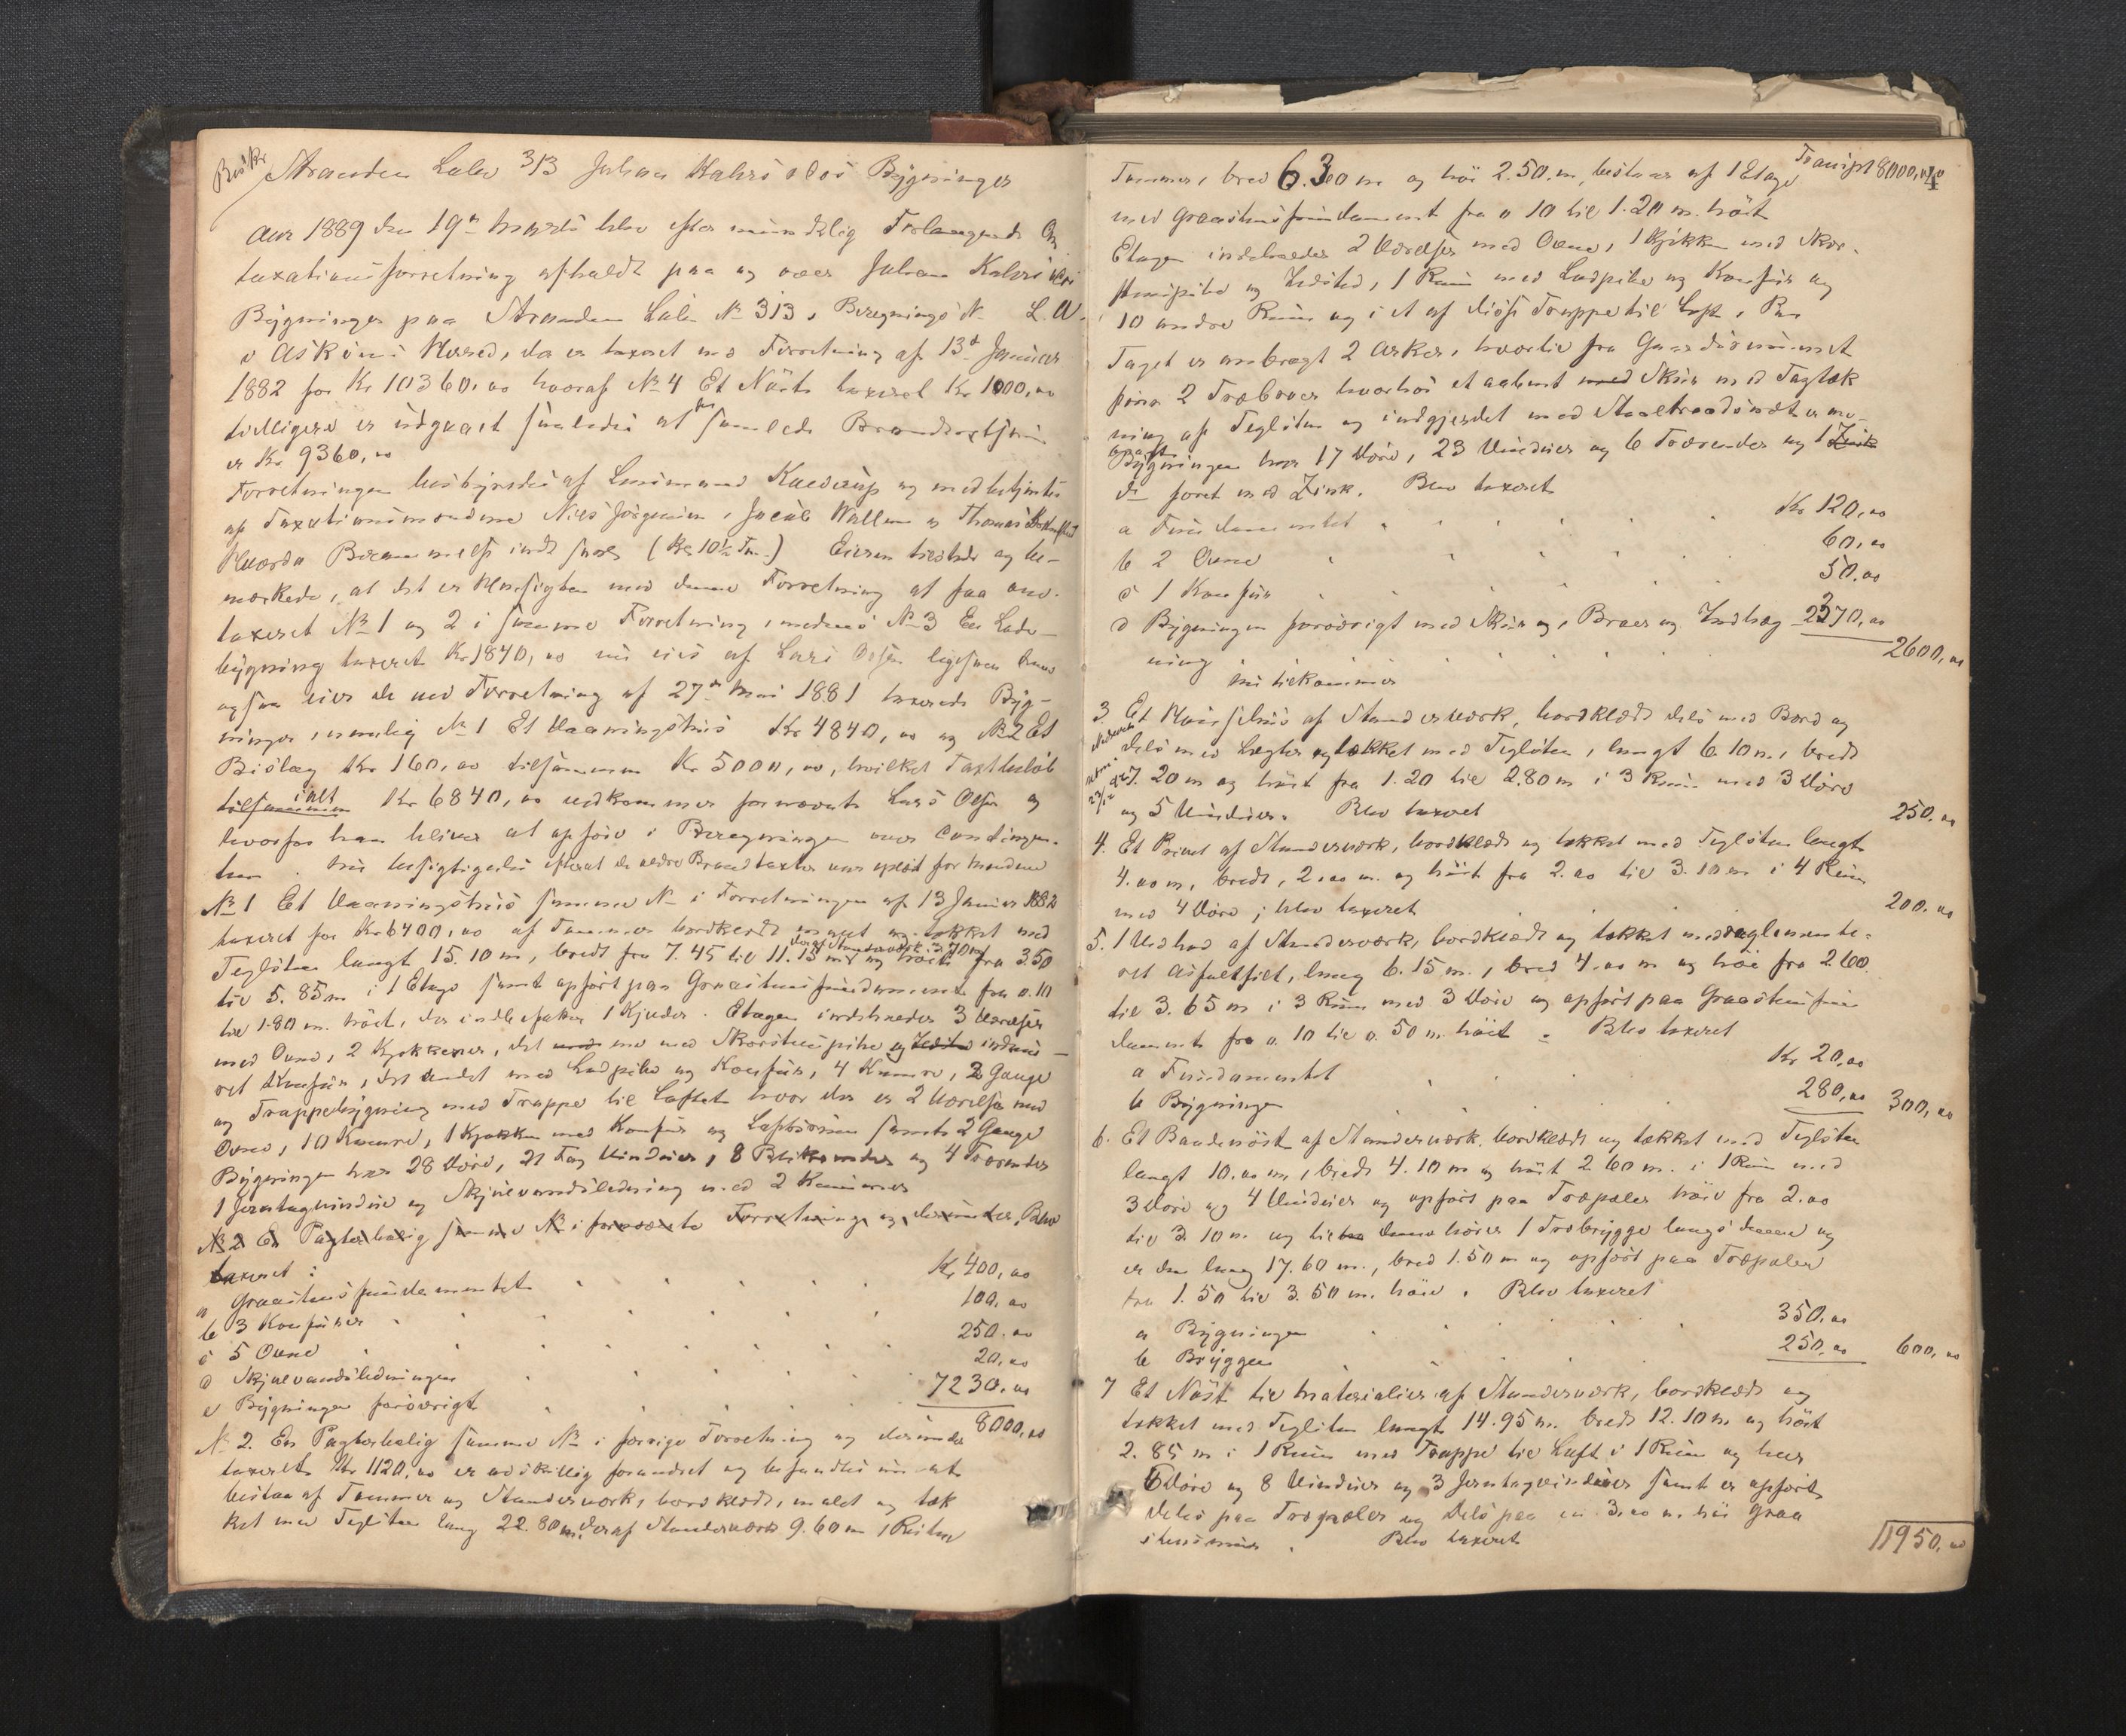 Beskr
Stranden Labr 313 Johan Kahrs's Bygninger
Aar 1889 den 19de Marts blev efter mundtlig Forlangende Om-
taxationsforretning afholdt paa og over Johan Kahrs
Bygninger paa Stranden Labr No 313, Beregnings No L. A.
i Askøens Herred, der er taxeret ved Forretning af 13de Januar
1882 for Kr 10360,00 hvoraf No 4 Et Nøst taxeret Kr 1000,00
tidligere er udgaaet saaledes at den samlede
er Kr 9360,00
Forretningen bestyredes af Lensmand og med betjentes
af Taxationsmændene Niels Jørgensen, Jacob Wallem og Thomas
(Kl 10½ Fm.) Eieren tilstede og be-
mærkede, at det er Hensigten med denne Forretning at faa om-
taxeret No 1 og 2 i samme Forretning, medens No 3 En Lade-
bygning taxeret Kr 1840,00 nu eies af Lars Olsen ligesom han
ogsaa eier de ved Forretning af 27de Mai 1881 taxerede Byg-
ninger, nemlig No 1 Et Vaaningshuus Kr 4840,00 og No 2 Et
Bislag Kr 160,00 tilsammen Kr 5000,00, hvilket Taxtbeløb
tilsammen ialt Kr 6840,00 vedkommer fornævnte Lars Olsen og
hvorfor han bliver at opføre i Beregningen over Contingen-
ten. Nu besigtigedes efterat de ældre Brandtaxter var oplæst for Mændene
No 1 Et Vaaningshuus samme No i Forretningen af 13 Januar 1882
taxeret for Kr 6400,00 af Tømmer bordklædt malet og tækket med
deraf Standerværk 3.70 m
Teglsten langt 15.10 m, bredt fra 7.45 til 11.15 m og høit fra 3.50
til 5.85 m i 1 Etage samt opført paa Graastensfundament fra 0.10
til 1.80 m. høit, der indbefatter 1 Kjelder. Etagen indeholder 3 Værelser
med Ovne, 2 Kjøkkener, det ene med Skorstenspibe og Ildsted indmu-
ret Komfur, det andet med Ladpibe og Komfur, 4 Kamre, 2 Gange
og Trappebygning med Trappe til Loftet hvor der er 2 Værelser med
Ovne, 10 Kamre, 1 Kjøkken med Komfur og samt 2 Gange
Bygningen har 28 Døre, 21 Fag Vinduer, 8 og 4 Trærender
1 Jerntagvindue og Skyllevandsledning med 2 Kummer
No 2 En Pagterbolig samme No i fornævnte Forretning og derunder. Blev
taxeret:
a Graastensfundamentet Kr 400,00
b 3 Komfurer 100,00
c 5 Ovne 250.00
d Skyllevandsledningen 20,00
e Bygningen forøvrigt 7230,00
8000,00
No 2. En Pagterbolig samme No i forrige Forretning og derunder
taxeret Kr 1120,00 er adskillig forandret og befandtes nu at
bestaa af Tømmer og Standerværk, bordklædt, malet og tæk
ket med Teglsten lang 22.80 m, deraf Standerværk 9.60 m, Resten
Transpt 8000,00
4
Tømmer, bred 6.30 m og høi 2.50. m, bestaar af 1 Etage
med Graastensfundament fra 0 10 til 1.20 m. høit
Etagen indeholder 2 Værelser med Ovne, 1 Kjøkken med Skor-
stenspibe og Ildsted, 1 Rum med Ladpibe og Komfur og
10 andre Rum og i et af disse Trappe til Loft. Paa
Taget er anbragt 2 Arker, hvortil fra Gaardsrummet
fører 2 Træbroer hvorhos et aabent Skur med Tagtæk
ning af Teglsten og indgjerdet med Staaltraadsnæt er
Bygningen har 17 Døre, 23 Vinduer og 6 Trærender og 1 Zink
do foret med Zink. Blev taxeret
a Fundamentet Kr 120,00
b 2 Ovne 60,00
c 1 Komfur 50.00
d Bygningen forøvrigt med Skur og, Broer og Indhæg- 2370,00
ning 2600,00
nu tilkommer
3. Et Hønsehuus af Standerværk, bordklædt dels med Bord og
dels med Lægter og tækket med Teglsten, langt 6 10 m, bredt
7.20 m og høit fra 1.20 til 2.80 m i 3 Rum med 3 Døre
og 5 Vinduer. Blev taxeret 250.00
4. Et Privet af Standerværk, bordklædt og tækket med Teglsten langt
4.00 m, bredt, 2.00 m. og høit fra 2.00 til 3.10 m i 4 Rum
med 4 Døre; blev taxeret 200.00
5. 1 Vedhus af Standerværk, bordklædt og tækket med reglemente-
ret Asfaltfilt, lang 6.15 m., bred 4.00 m og høi fra 2.60
til 3.65 m i 3 Rum med 3 Døre og opført paa Graastensfun
dament fra 0.10 til 0.50 m. høit. Blev taxeret
a Fundamentet Kr. 20,00
b Bygningen 280,00 300,00
6. Et Baadenøst af Standerværk, bordklædt og tækket med Teglsten
langt 10.00 m, bredt 4.10 m og høit 2.60 m. i 1 Rum med
3 Døre og 4 Vinduer og opført paa Træpæler høie fra 2.00
til 3.10 m og til denne hører 1 Træbrygge langs denne og
er den lang 17.60 m., bred 1.50 m og opført paa Træpæler
fra 1.50 til 3.50 m. høie. Blev taxeret
a Bygningen 350,00
b Bryggen 250,00 600,00
7 Et Nøst til Materialier af Standerværk, bordklædt og
tækket med Teglsten langt 14.95 m. bredt 12.10 m og høit
2.85 m i 1 Rum med Trappe til Loft i 1 Rum og har
6 Døre og 8 Vinduer og 3 Jerntagvinduer samt er opført
dels paa Træpæler og dels paa en 3.00 m. høi Graa
stensmur. Blev taxeret
11950,00